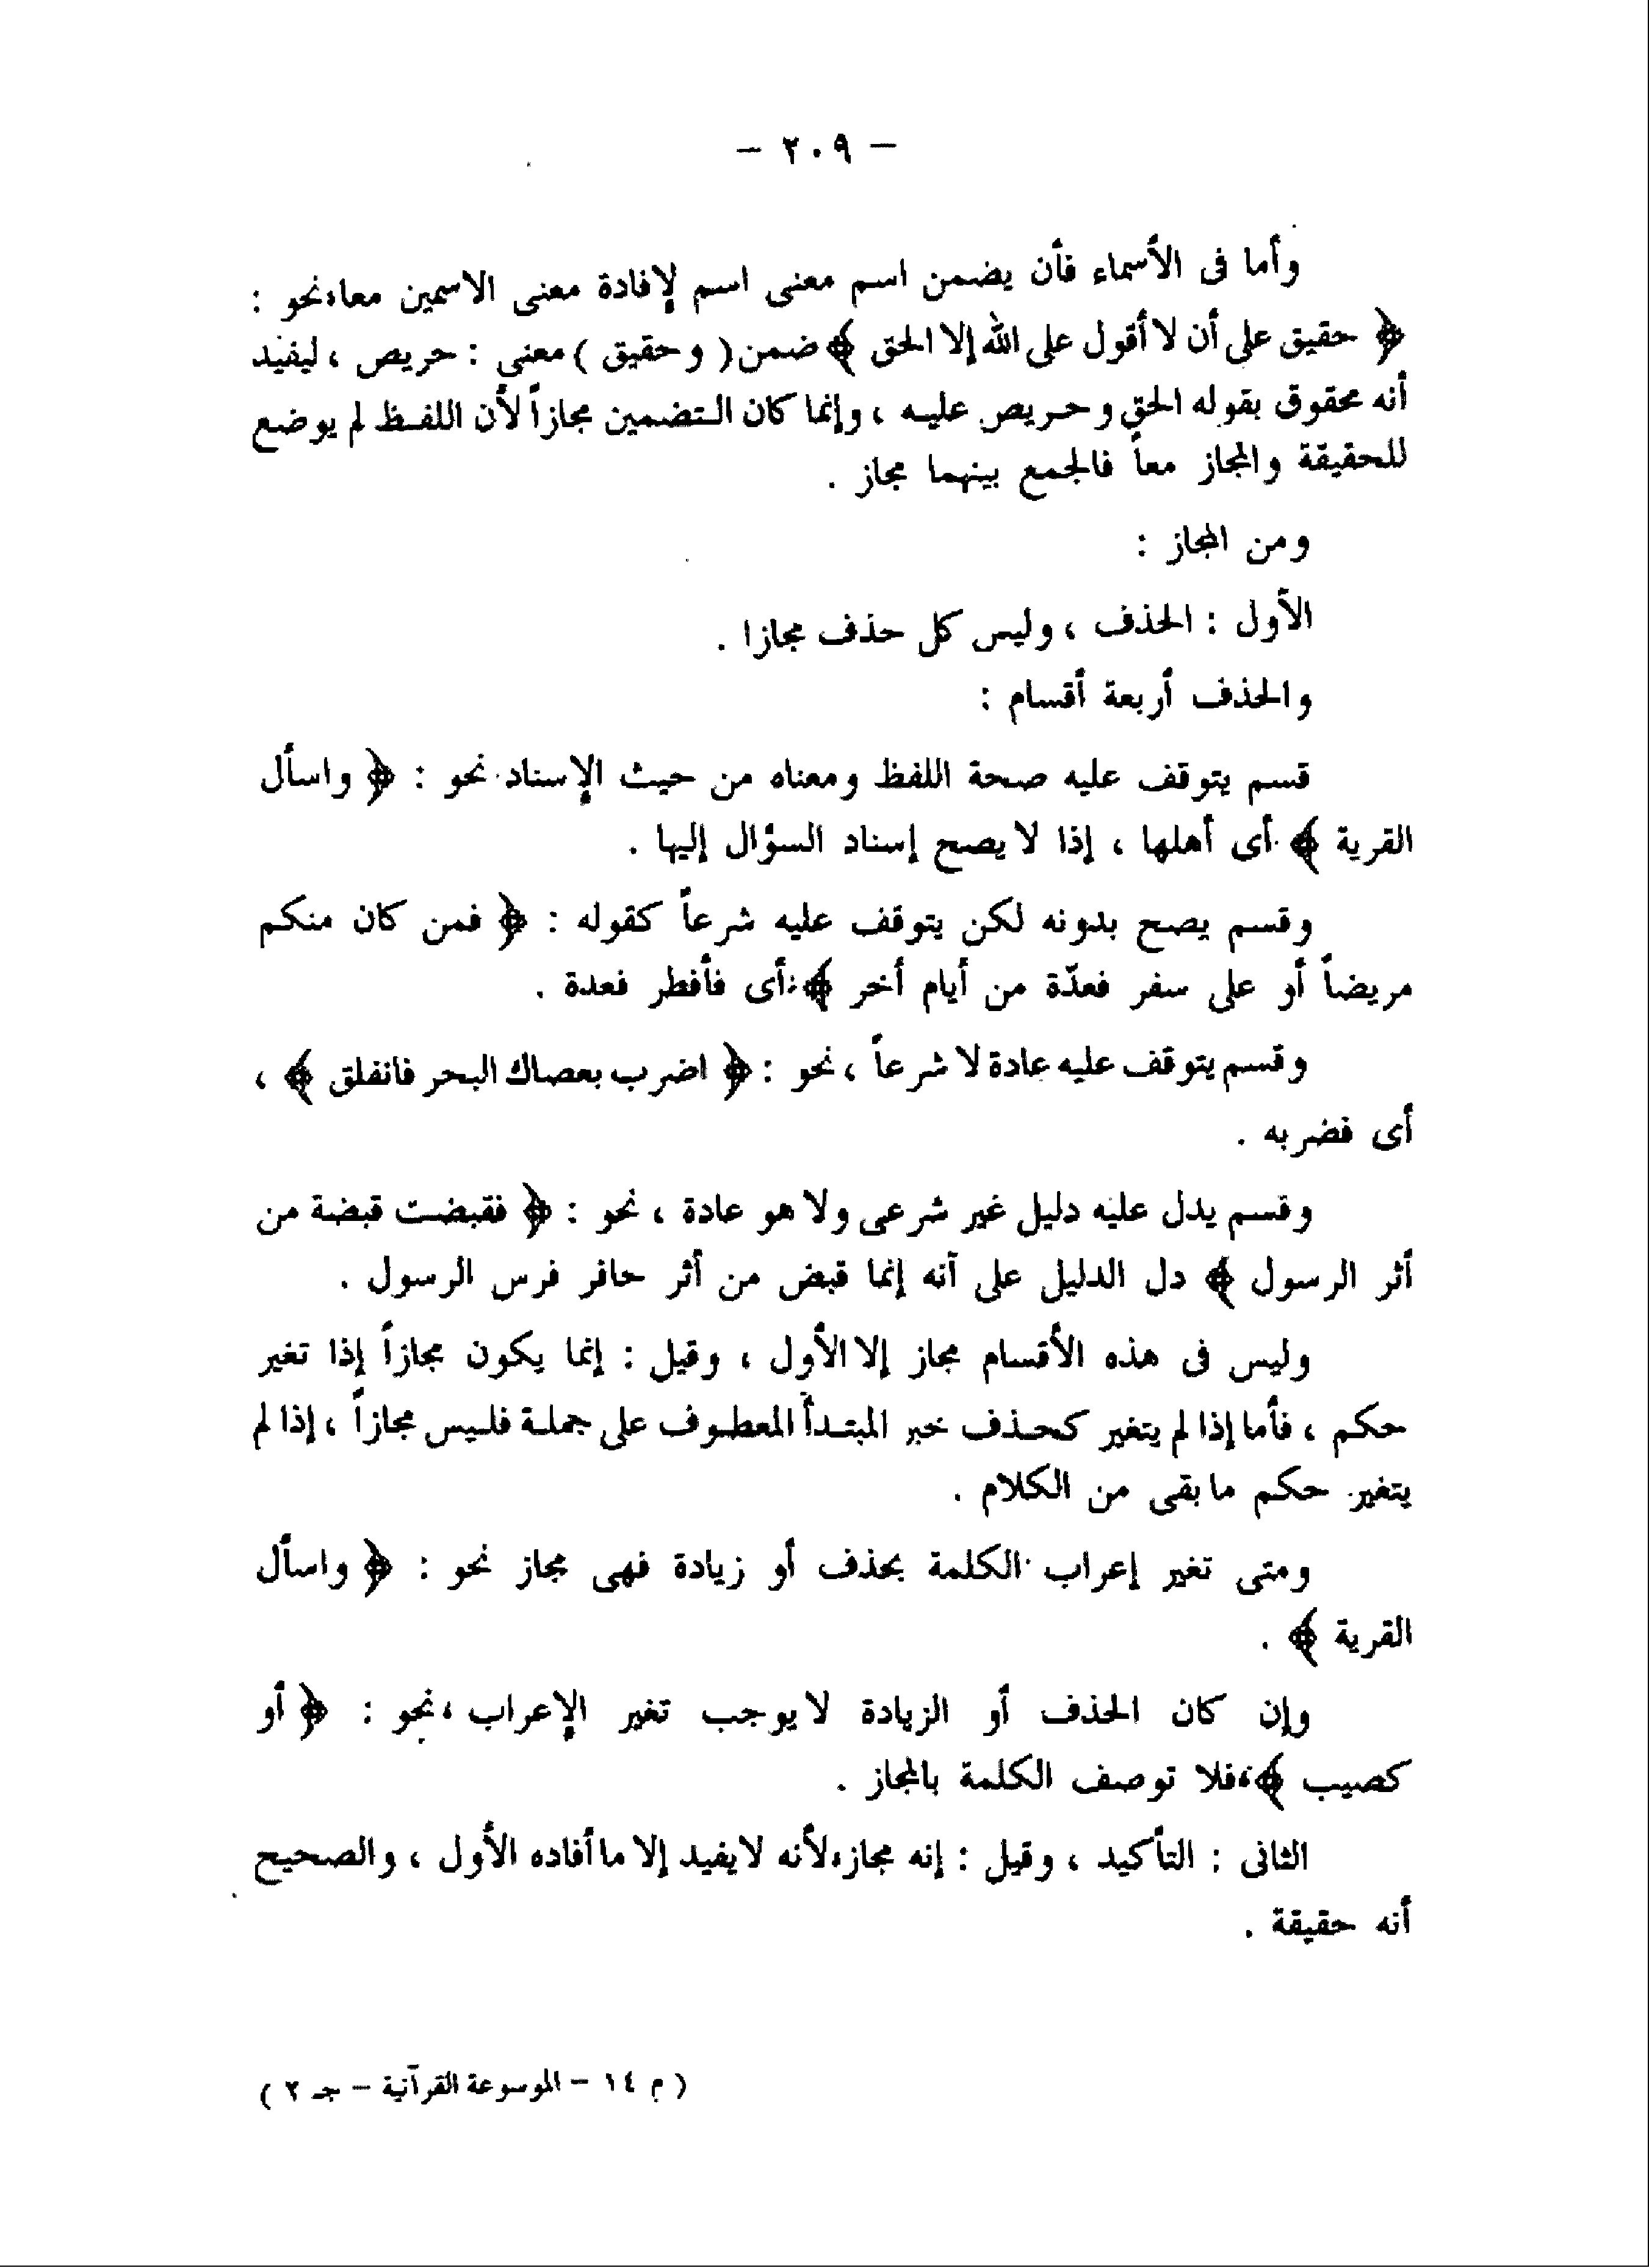 — ٢٠٩ —
وأما فى الأسماء فأن يضمن اسم معنى اسم لإفادة معنى الاسمين معا،نحو :
﴿ حقيق على أن لا أقول على الله إلا الحق ﴾ ضمن ( وحقيق ) معنى : حريص ، ليفيد
أنه محقوق بقوله الحق وحريص عليه ، وإنما كان التضمين مجازاً لأن اللفظ لم يوضع
للحقيقة والمجاز معاً فالجمع بينهما مجاز .
ومن المجاز :
الأول : الحذف ، وليس كل حذف مجازا .
والحذف أربعة أقسام :
قسم يتوقف عليه صحة اللفظ ومعناه من حيث الإسناد نحو : ﴿ واسأل
القرية ﴾ أى أهلها ، إذا لا يصح إسناد السؤال إليها .
وقسم يصح بدونه لكن يتوقف عليه شرعاً كقوله : ﴿ فمن كان منكم
مريضاً أو على سفر فعدّة من أيام أخر ﴾ ؛أى فأفطر فعدة .
وقسم يتوقف عليه عادة لا شرعاً ، نحو : ﴿ اضرب بعصاك البحر فانفلق ﴾ ،
أى فضربه .
وقسم يدل عليه دليل غير شرعى ولا هو عادة ، نحو : ﴿ فقبضت قبضة من
أثر الرسول ﴾ دل الدليل على أنه إنما قبض من أثر حافر فرس الرسول .
وليس فى هذه الأقسام مجاز إلا الأول ، وقيل : إنما يكون مجازاً إذا تغير
حكم ، فأما إذا لم يتغير كحذف خبر المبتدأ المعطوف على جملة فليس مجازاً ، إذا لم
يتغير حكم ما بقى من الكلام .
ومتى تغير إعراب الكلمة بحذف أو زيادة فهى مجاز نحو : ﴿ واسأل
القرية ﴾ .
وإن كان الحذف أو الزيادة لا يوجب تغير الإعراب ،نحو : ﴿ أو
كصيب ﴾،فلا توصف الكلمة بالمجاز .
الثانى : التأكيد ، وقيل : إنه مجاز،لأنه لا يفيد إلا ما أفاده الأول ، والصحيح
أنه حقيقة .
( م ١٤ – الموسوعة القرآنية – جـ ٢ )